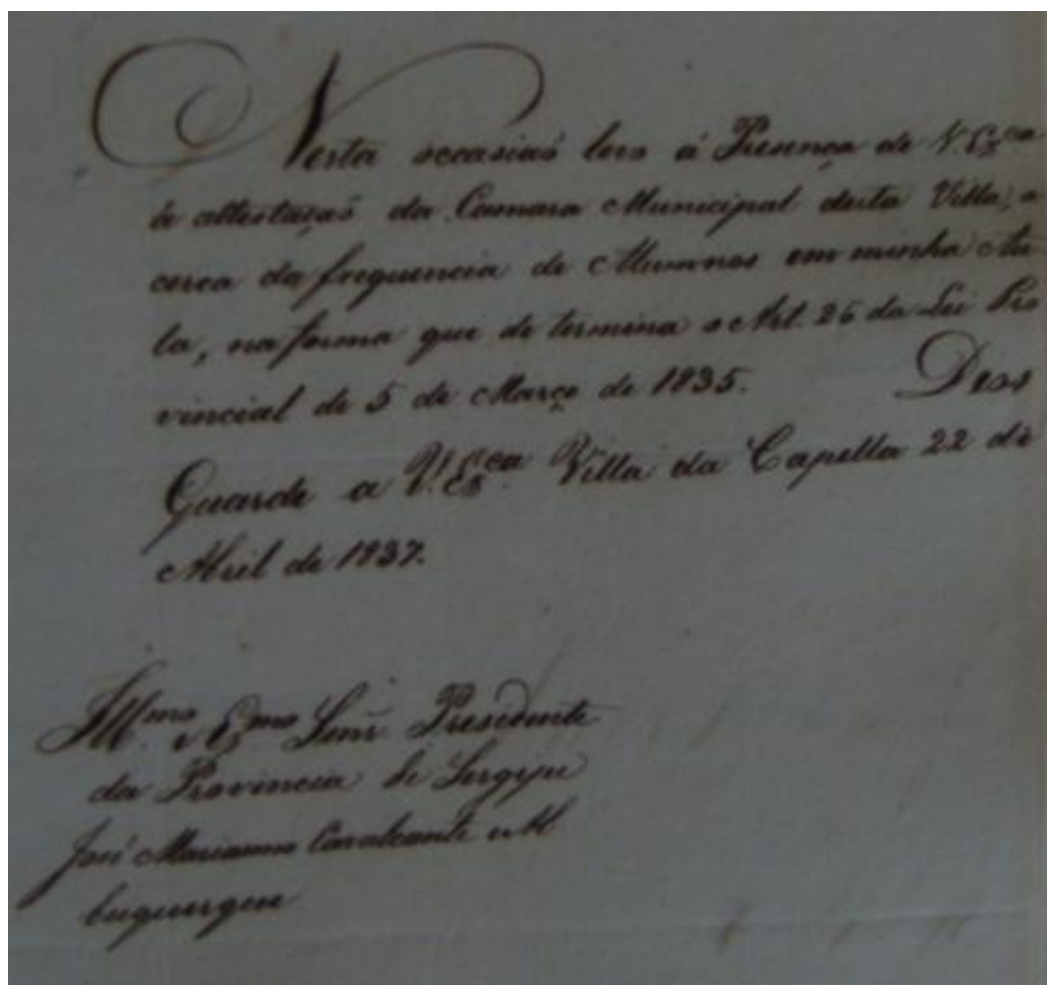 Nesta occasiaõ levo á Presença de V. Exca
a attestaçaõ da Camara Municipal desta Villa, a
cerca da frequencia de Alumnos em minha Au
la, na forma que determina o Art. 26 da Lei Pro
vincial de 5 de Março de 1835. Deos
Guarde a V. Exca. Villa da Capella 22 de
Abril de 1837.
Illmo. e Exmo Senr. Presidente
da Provincia de Sergipe
José Marianno Cavalcante Al
buquerque